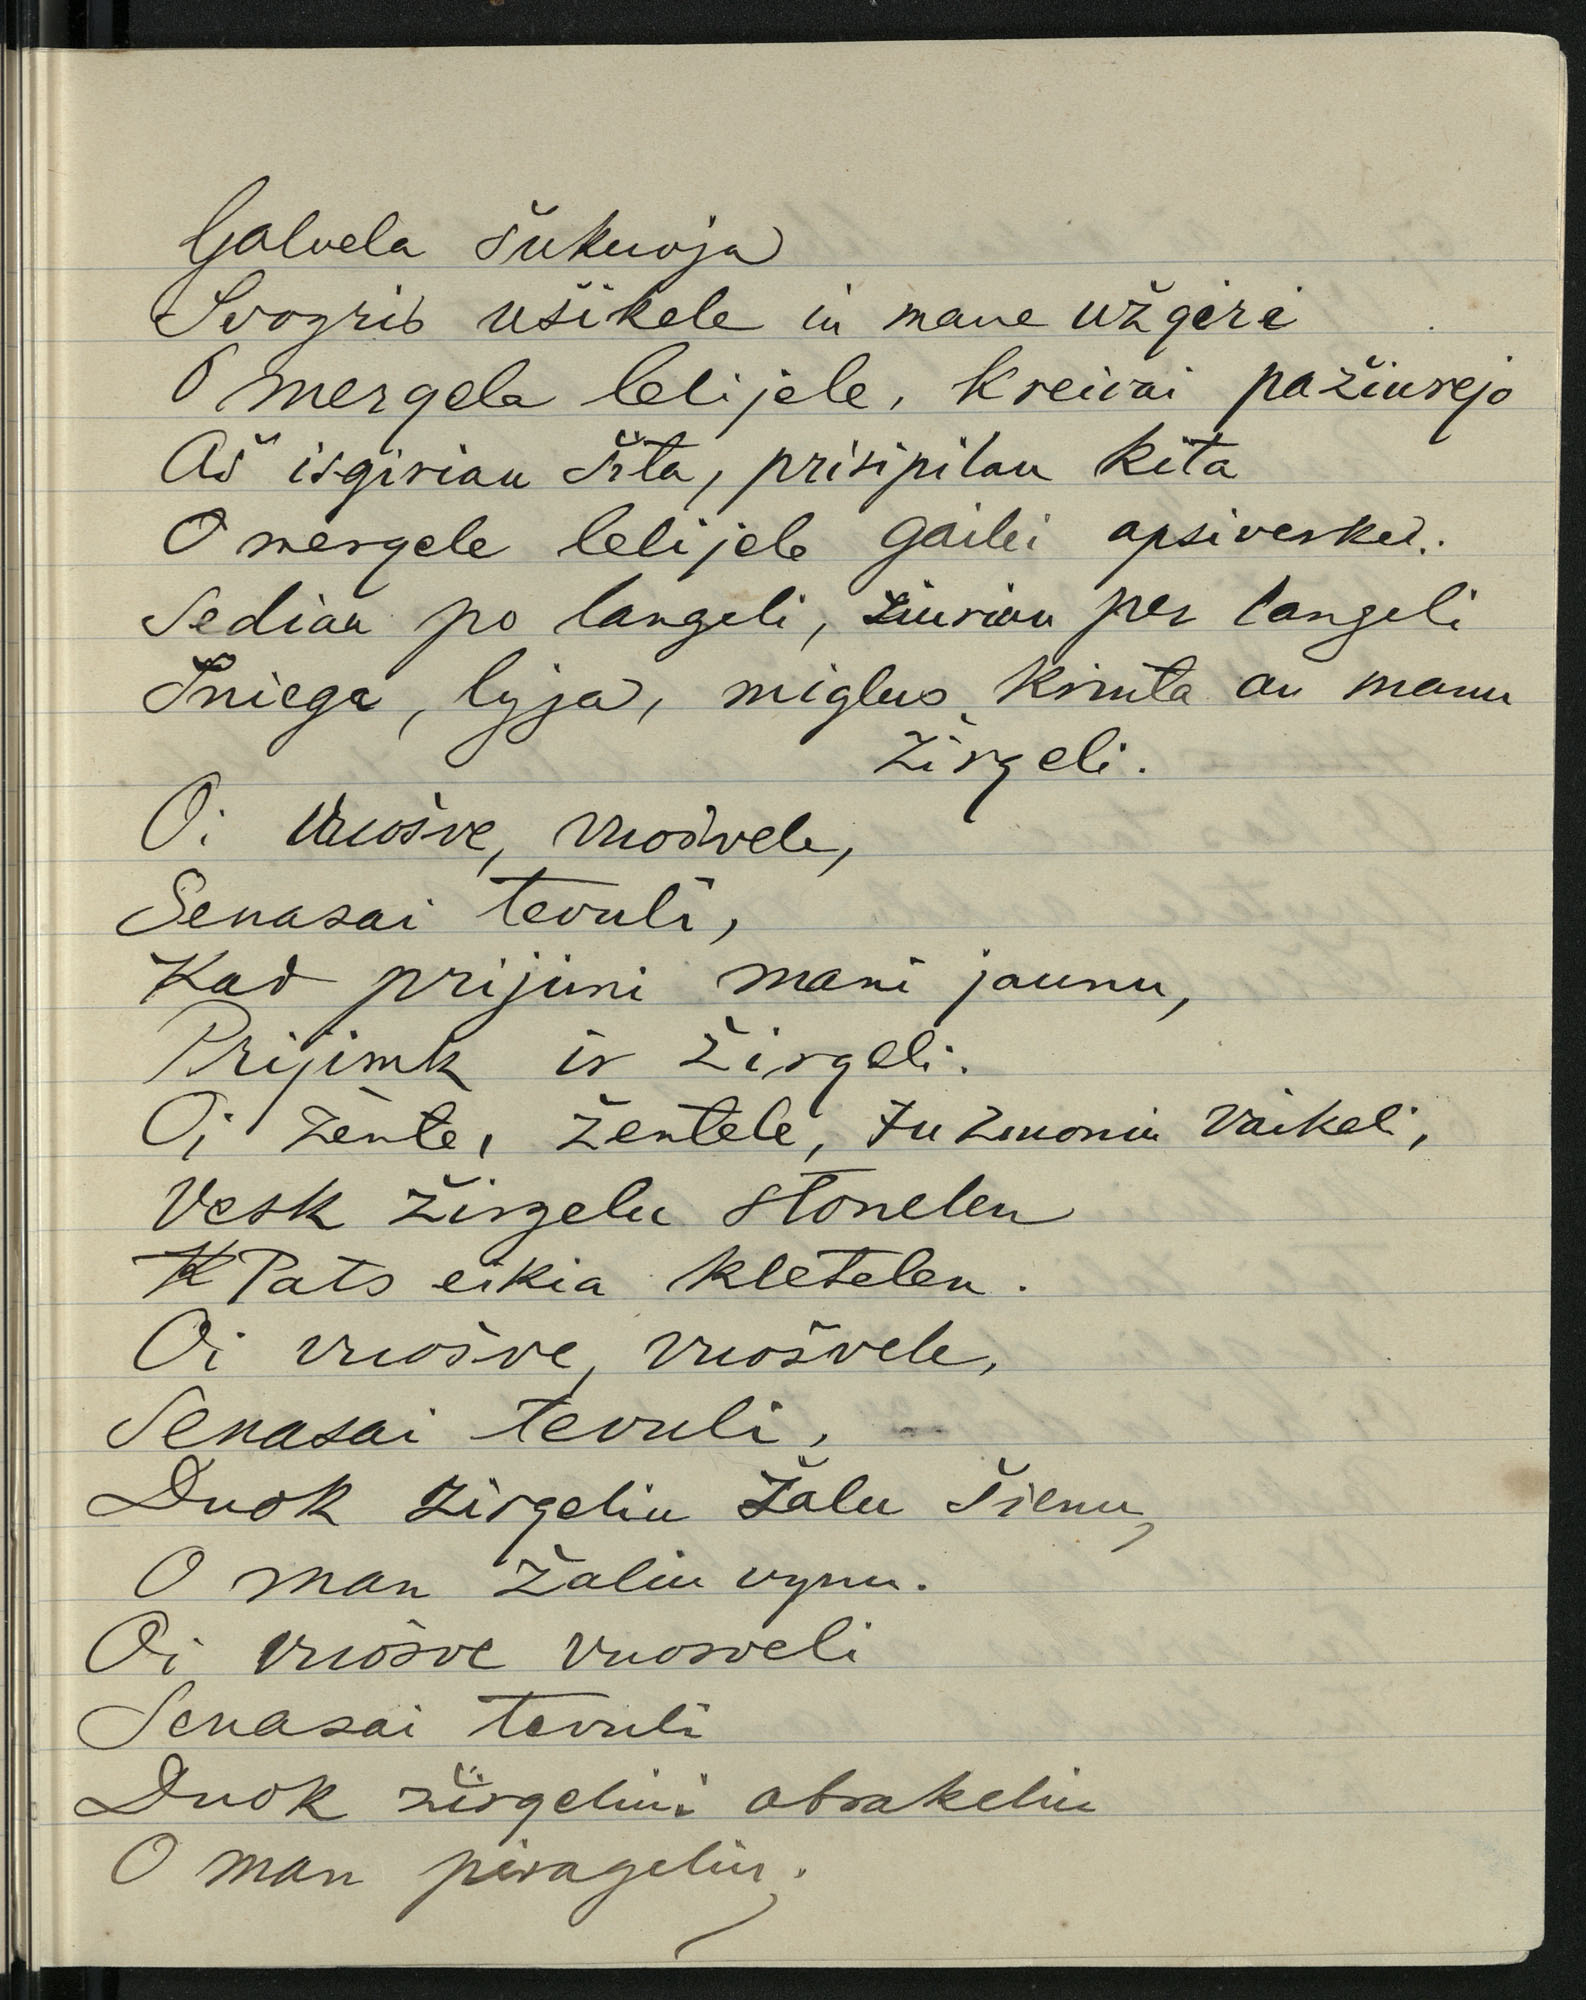 Galvela šukuoja
Svogris ušikele in mane užgėrė
O mergela lelijele, kreivai pažiurejo
Aš isgiriau šita, prisipilau kita
O mergele lelijele gailei apsiverke.
Sediau po langeli, žiuriau per langeli
Šniega, lyja, miglus krinta an manu
žirgeli.
Oi vuošve, vuošvele,
Senasai tevuli,
Kad prijimi mani jaunu,
Prijimk ir žirgeli.
Oi žente, žentele, Ju žmoniu vaikeli,
Vesk žirgelu stonelen
K Pats eikia kletelen.
Oi vuošve, vuošvele,
Senasai tevuli,
Duok žirgeliu žalu šienu,
O man žaliu vynu.
Oi vuošve vuosveli
Senasai tevuli
Duok žirgeliui abrakeliu
O man pirageliu.